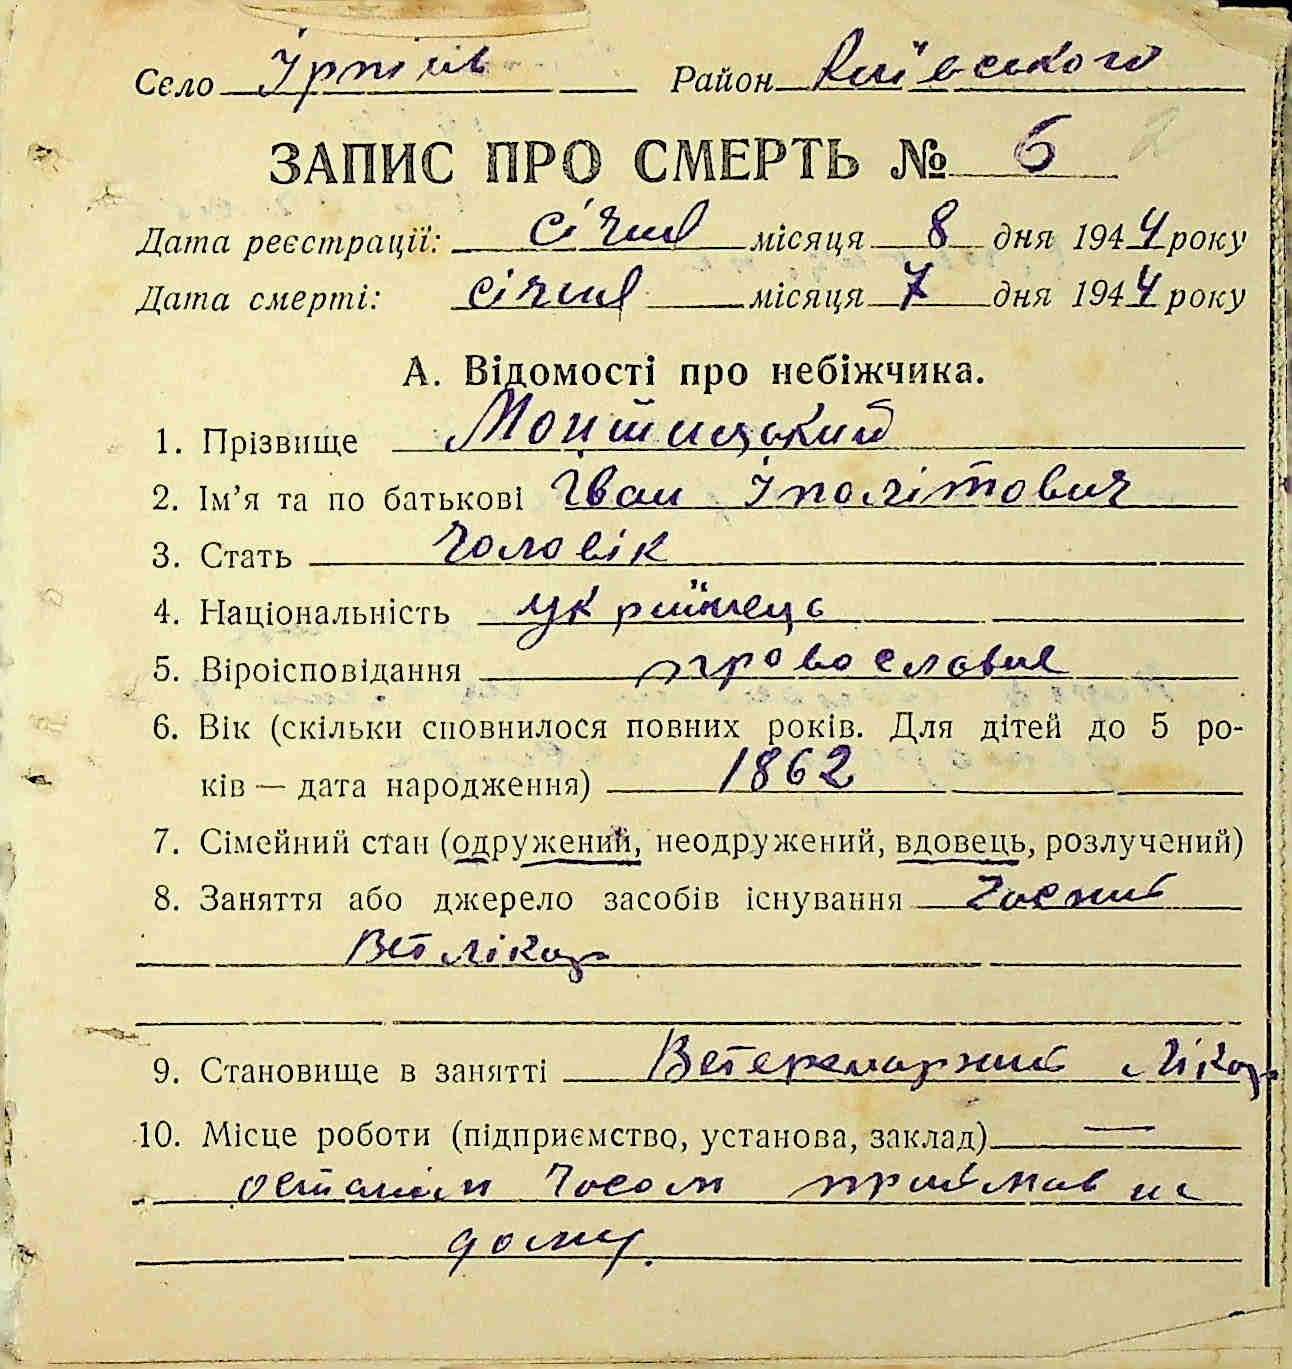 Село Ірпінь Район Київського
ЗАПИС ПРО СМЕРТЬ № 6
Дата реєстрації: січня місяця 8 дня 1944 року
Дата смерті: січня місяця 7 дня 1944 року
А. Відомості про небіжчика.
1. Прізвище
2. Ім’я та по батькові Іван Іполітович
3. Стать чоловік
4. Національність українець
5. Віроісповідання православне
6. Вік (скільки сповнилося повних років. Для дітей до 5 ро-
ків — дата народження) 1862
7. Сімейний стан (одружений, неодружений, вдовець, розлучений)
8. Заняття або джерело засобів існування
Вет лікар
9. Становище в занятті Ветеренарний лікар
10. Місце роботи (підприємство, установа, заклад) —
останім часом приймав на
дому.